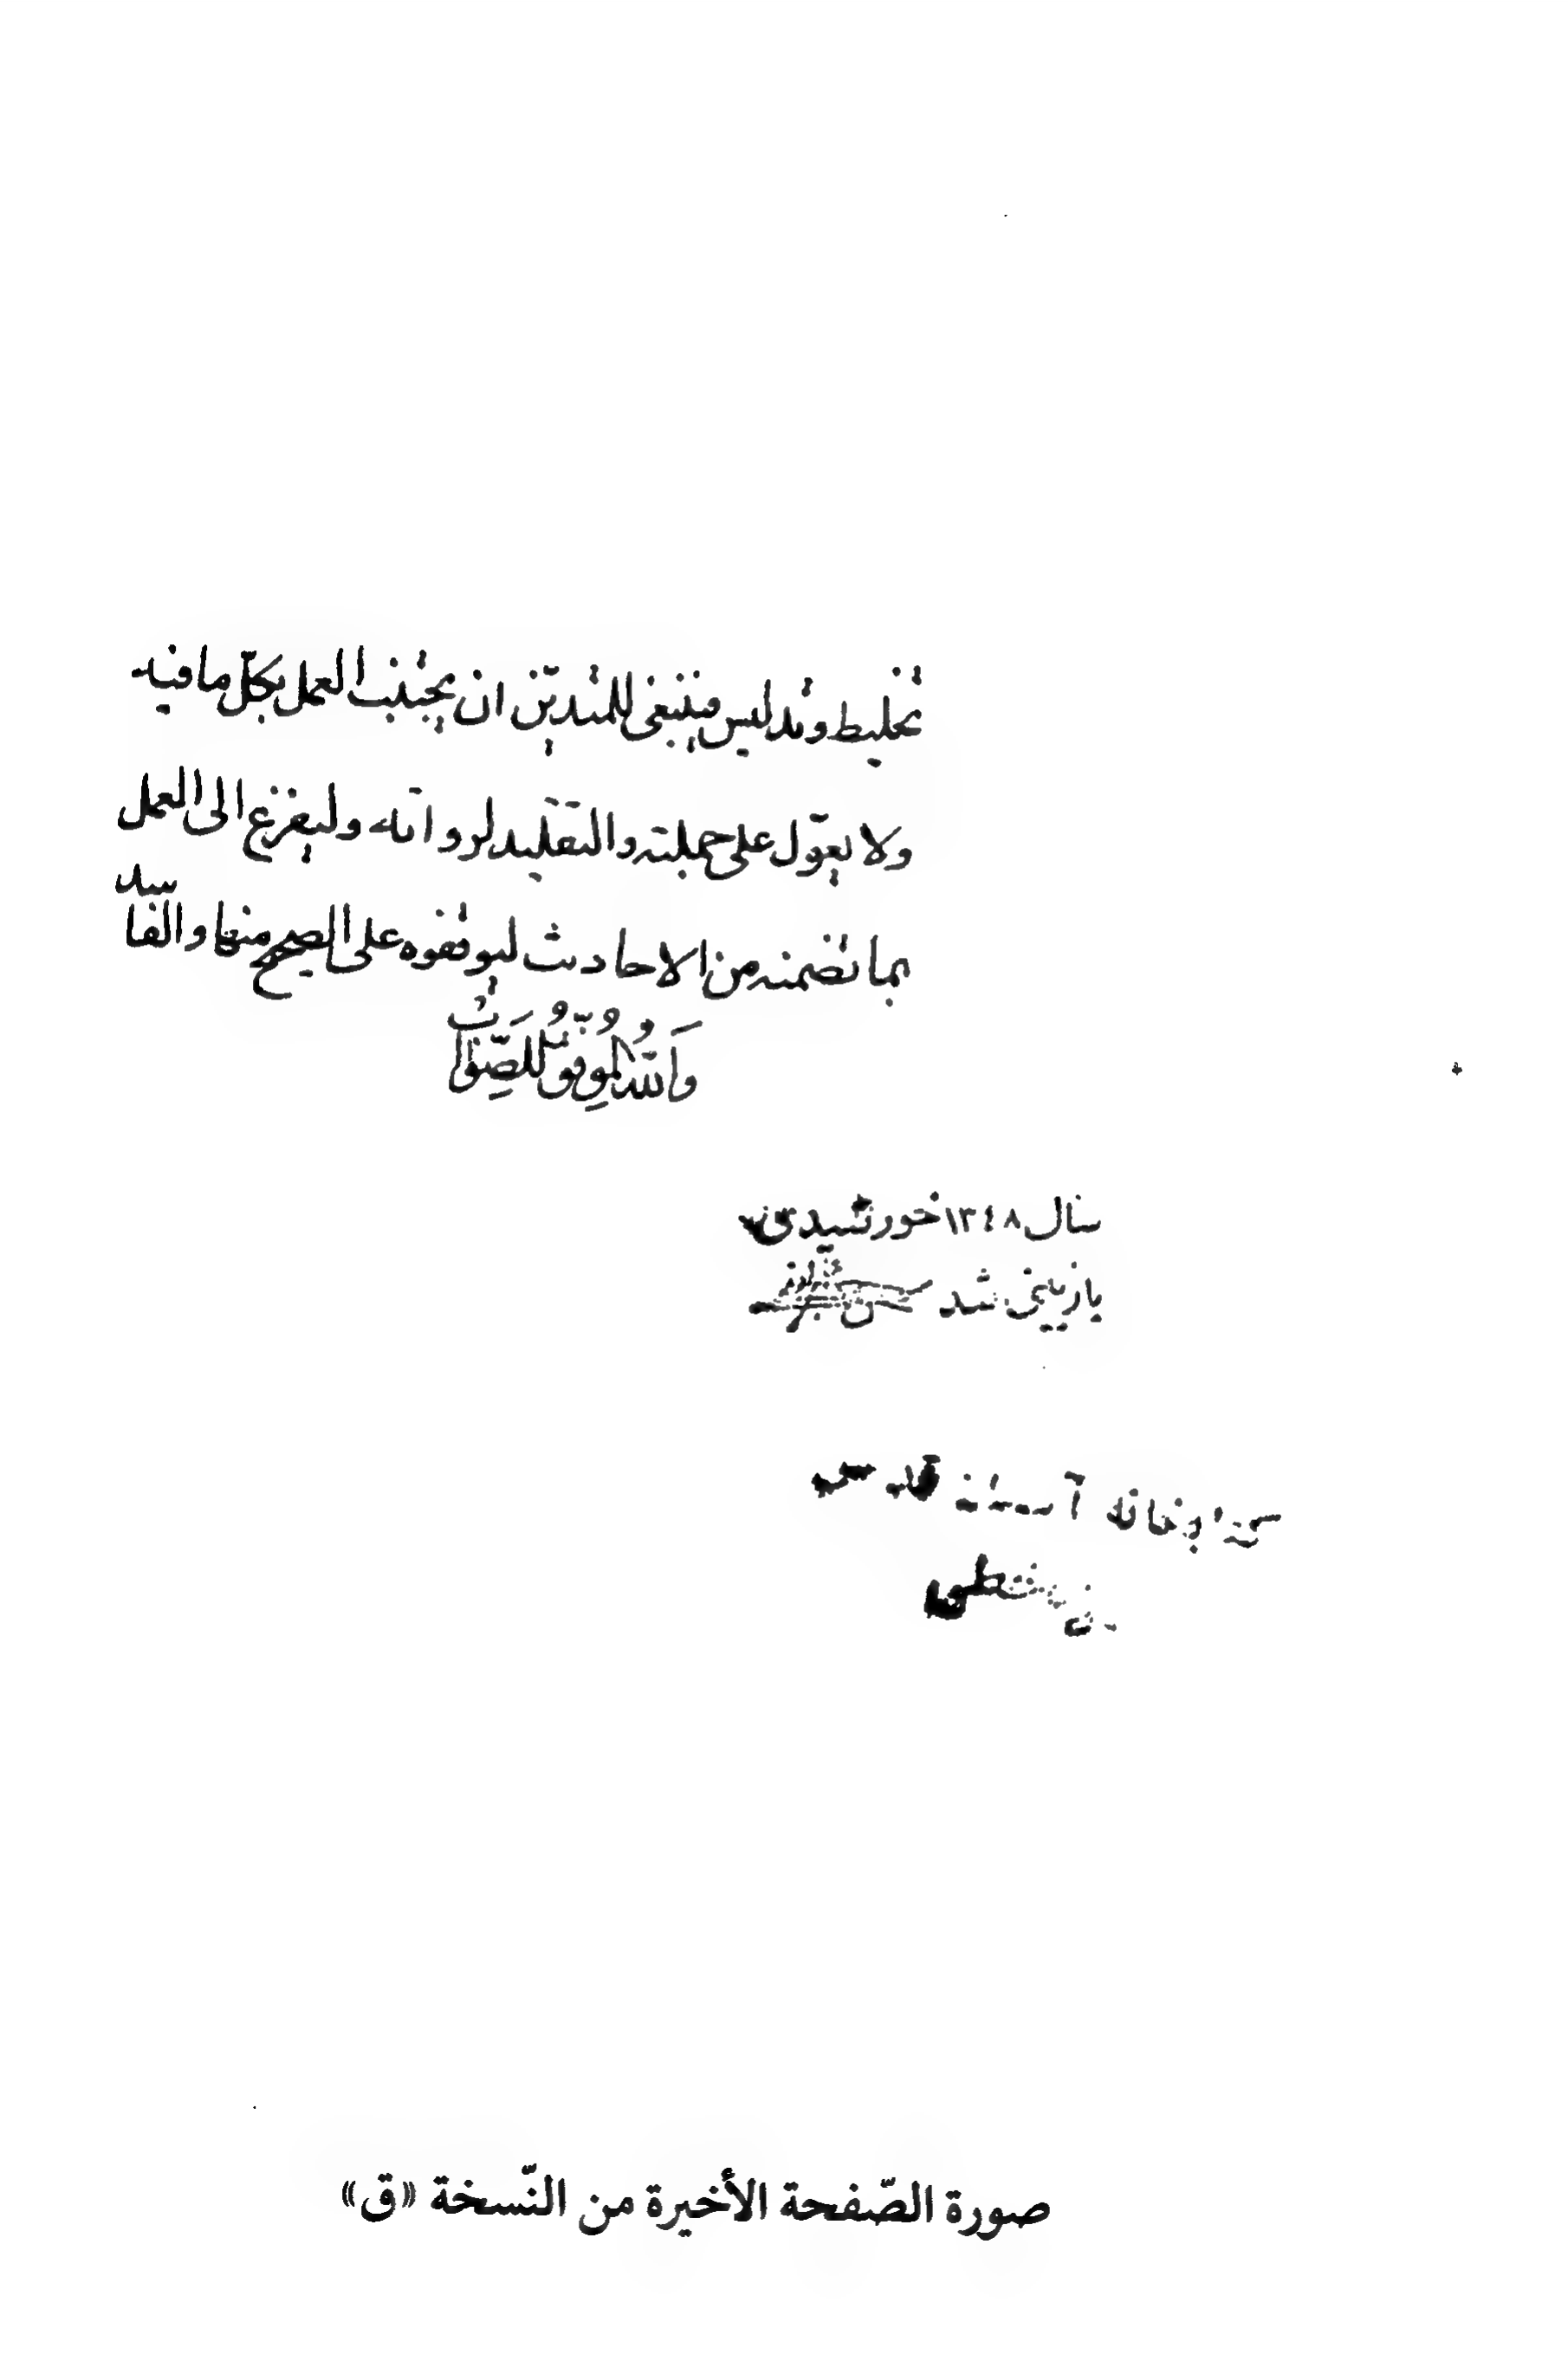 تخليط وتدليس فينبغى للمتديّن ان يجتنب العمل بكلّ ما فيه
ولا يعوّل على جملته والتقليد لرواته وليفزع الى العمل
بما تضمنه من الاحاديث ليوقفوه على الصحيح منها والفاسد
وَاللهُ المُوَفِّقُ لِلصَّوَابُ
سال ١٣٤٨ خورشیدی
بازبینی شد
کتابخانه آستان قدس
صورة الصّفحة الأخيرة من النّسخة «ق»